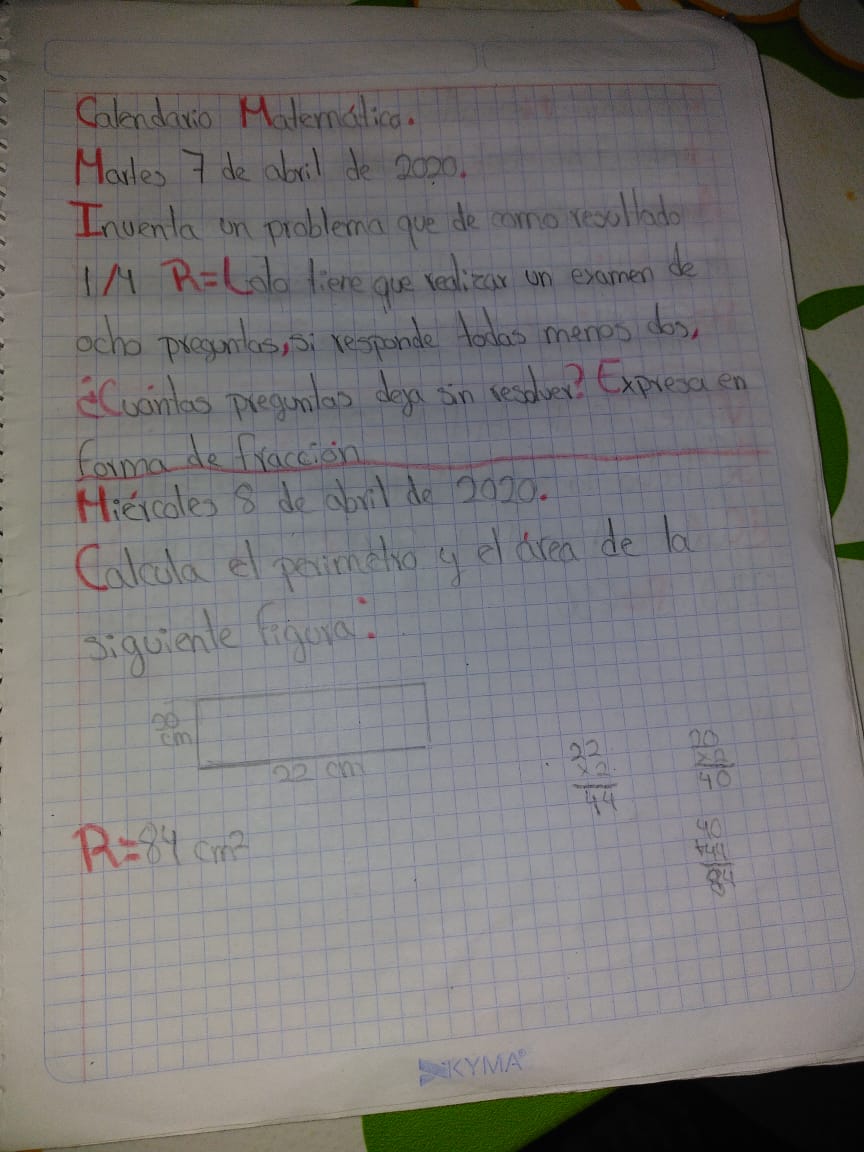 Calendario Matemático.
Martes 7 de abril de 2020.
Inventa un problema que de como resultado
1/4 R=Lolo tiene que realizar un examen de
ocho preguntas, si responde todas menos dos,
¿Cuántas preguntas deja sin resolver? Expresa en
forma de fracción
Miércoles 8 de abril de 2020.
Calcula el perimetro y el área de la
siguiente figura:
20
cm
22 cm
22
x2
44
20
x2
40
40
+44
84
R=84 cm²
KYMA®